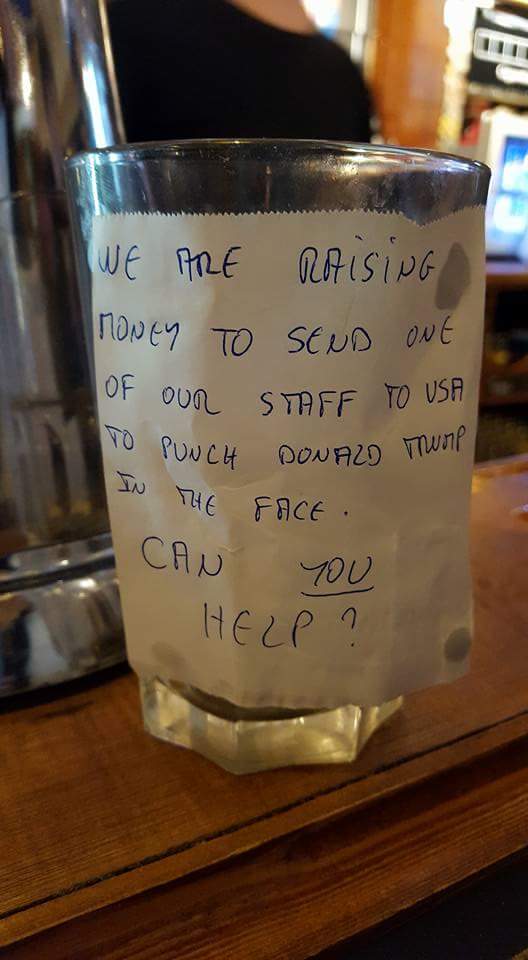 WE ARE RAISING
MONEY TO SEND ONE
OF OUR STAFF TO USA
TO PUNCH DONALD TRUMP
IN THE FACE.
CAN YOU
HELP?